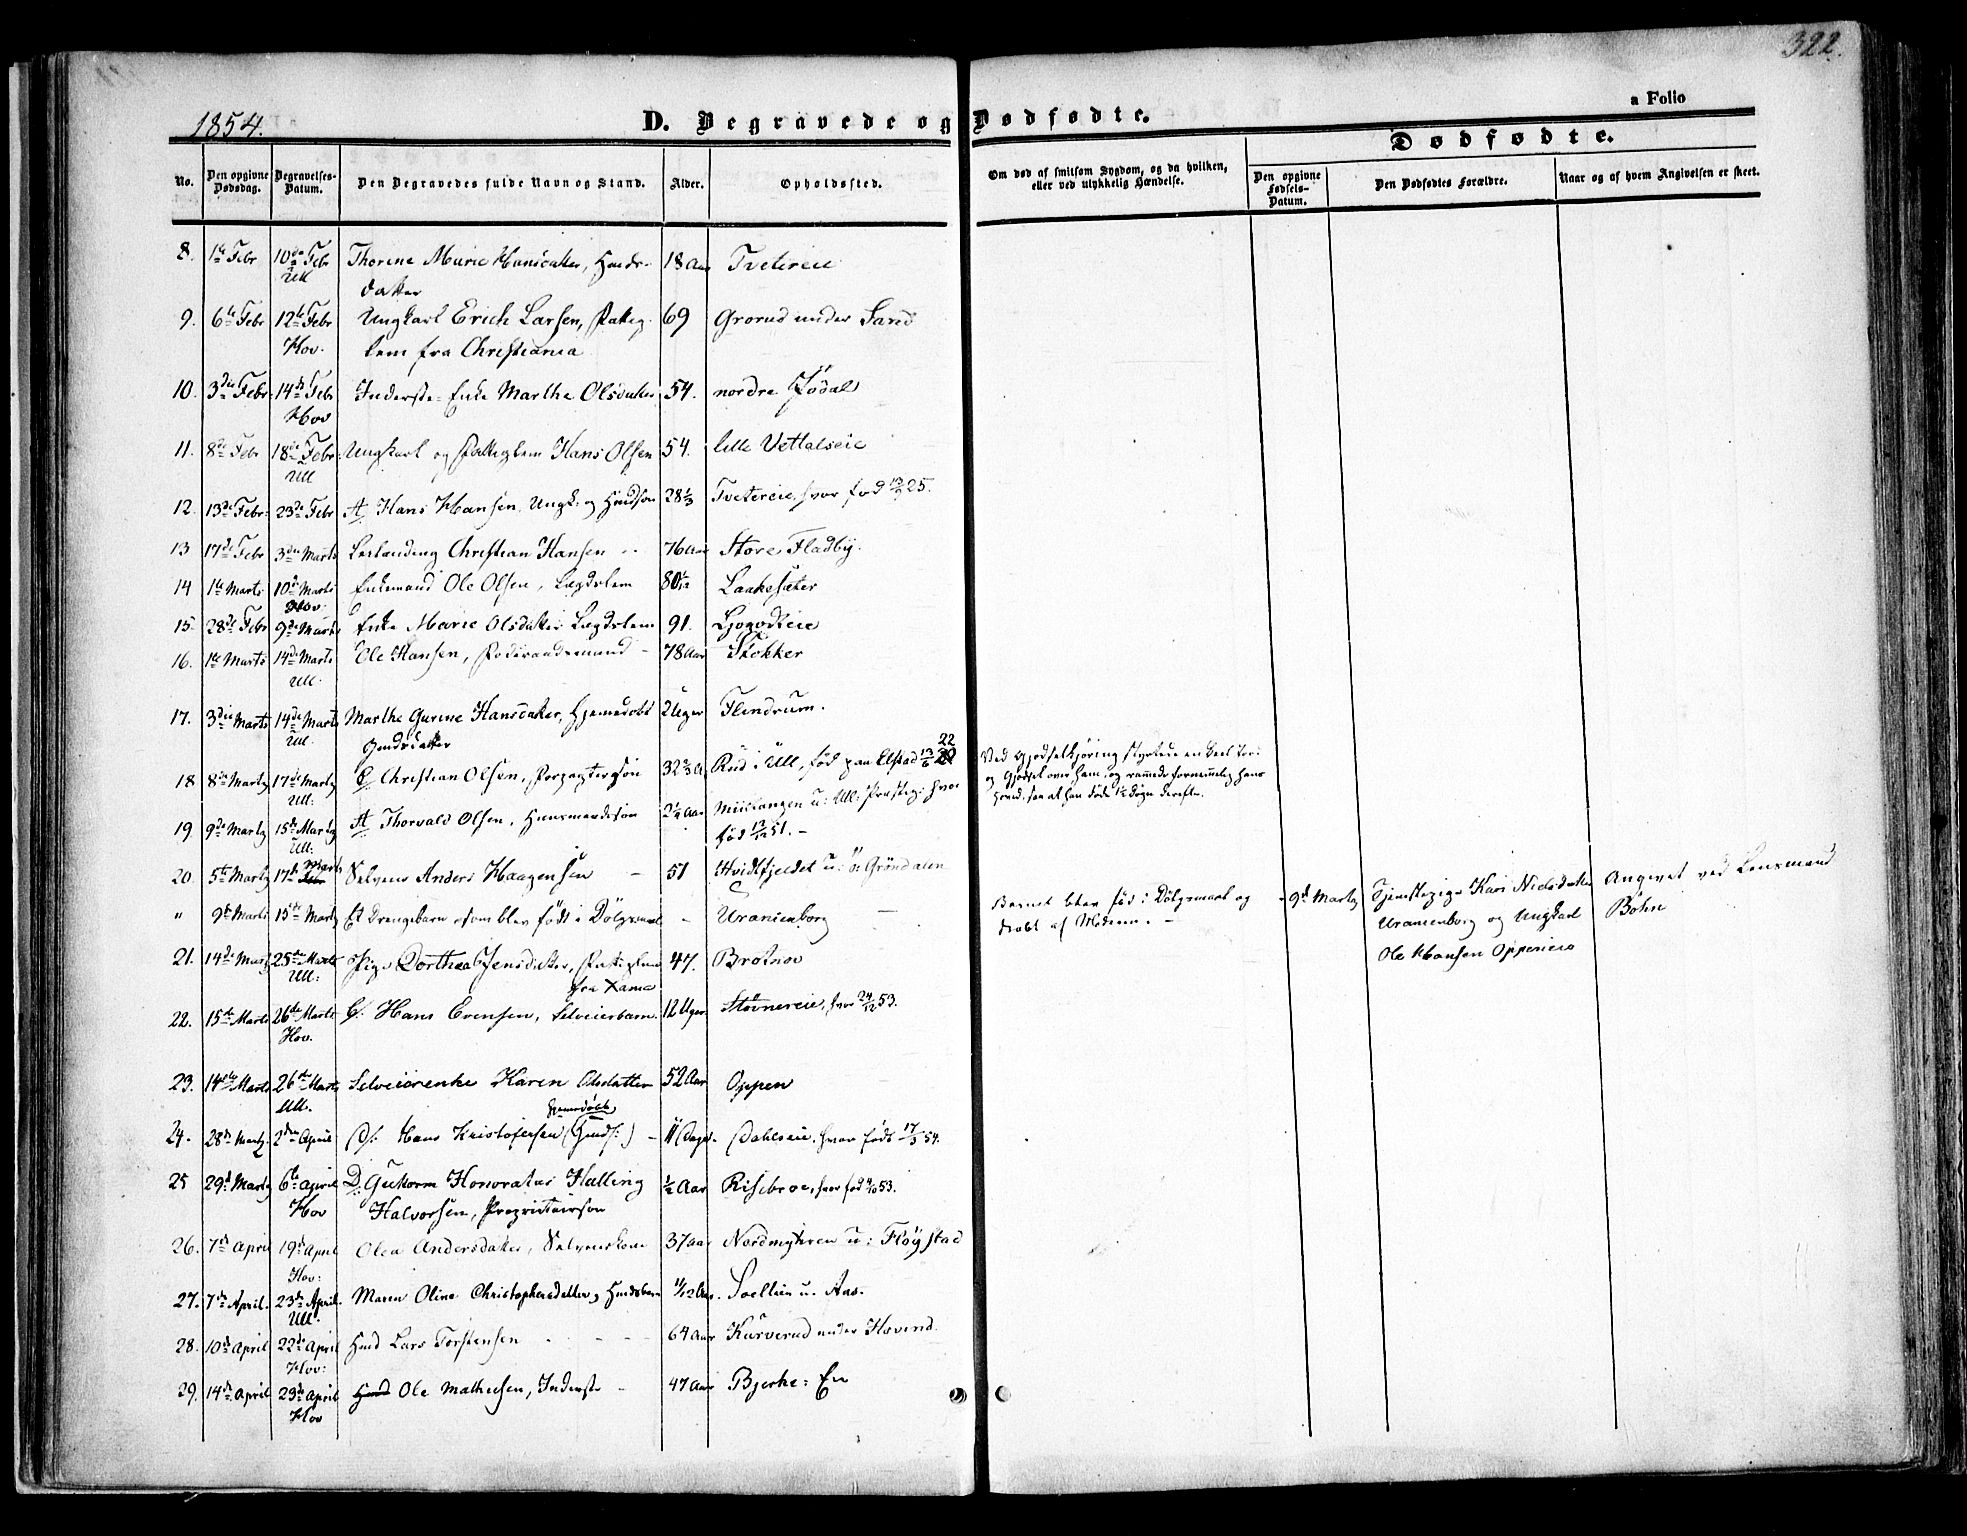 322.
a Folio
1854.
D. Begravede og Dødfødte.
Dødfødte.
No.
Den opgivne Dødsdag.
Begravelses-Datum.
Den Begravedes fulde Navn og Stand.
Alder.
Opholdssted.
Om død af smitsom Sygdom, og da hvilken,
eller ved ulykkelig Hændelse.
Den opgivne Fødsels-Datum.
Den Dødfødtes Forældre.
Naar og af hvem Angivelsen er skeet.
8. 1ste Febr 10de Febr Thorine Marie Hansdatter, Hmds- 18 Aar Tvetereie
Ull datter
9. 6te Febr 12te Febr Ungkarl Erich Larsen, Fattig- 69 Grorud under Sand
Hov. lem fra Christiania
10. 3die Febr 14de Febr Inderste-Enke Marthe Olsdatter 54. nordre Jødal
Hov
11. 8de Febr 18de Febr Ungkarl og Fattiglem Hans Olsen 54. lille Vettalseie
Ull
12. 13de Febr 23de Febr A Hans Hansen, Ungk. og Hmdsøn 28 1/3 Tvetereie, hvor fød 13/9 25.
13 17de Febr 3die Marts Christian Hansen 76 Aar Store Fladby.
14 1ste Marts 10de Marts Enkemand Ole Olsen, Lægdslem 80 1/12 Laakesæter
Hov.
15. 28de Febr 9de Marts Enke Marie Olsdatter Lægdslem 91. Ljøgodteie
16. 1ste Marts 14de Marts Ole Hansen, Føderaadsmand - 78 Aar Stokker
Ull.
17. 3die Marts 14de Marts Marthe Gurine Hansdatter, Hjemmedøbt 2 Uger Flendrum.
Ull. Hmdsdatter
18 8de Marts 17de Marts C Christian Olsen, Forpagtersøn 32 2/3 A. Rud i Ull, fød paa Elstad 13/6 22
Ull:
Ved Gjødselkjøring styrtede en Deel Jord
og Gjødsel over ham, og rammede fornemmelig hans
Hoved, saa at han døde 1/2 Døgn derefter.
19. 9de Marts 15de Marts A Thorvald Olsen, Huusmandssøn 2 1/4 Aar u: Ull: Præsteg: hvor
Ull: fød 13/12 51. -
20. 5te Marts 17de Marts Selveier Anders Haagensen - 51 Hvidtfjeldet u: ø: Gröndalen
" 9de Marts 15de Marts Et Drengebarn som blev født i Dölgsmaal - Uranienborg
Barnet blev fød i Dölgsmaal og
dræbt af Moderen. -
9de Marts Tjenestepige Kari Nielsdatter
Uranienborg og Ungkarl
Ole Hansen Oppeneie
Angivet ved Lensmand
Bohn
21. 14de Marts 25de Marts Pige Dorthea Jensdatter, Fattiglem 47. Brotnov
Ull: fra Xania
22. 15de Marts 26de Marts C: Hans Evensen, Selveierbarn. 12 Uger Stövnereie, hvor 24/12 53.
Hov.
23. 14de Marts 26de Marts Selveierenke Karen Olsdatter 52 Aar Oppen
Ull. hjemmedöbt
24. 28de Marts 2den April D: Hans Kristofersen (Hmds:) - 11 Dage Dahlseie, hvor født 17/3 54.
25 29de Marts 6te April D: Guttorm Honoratus Halling 1/2 Aar Risebroe, hvor fød 4/10 53.
Hov Halvorsen, Proprietairsøn
26. 7de April 19de April Olea Andersdatter, Selveierkone 37 aar Nordmyhren u: Flöystad
Hov:
27. 7de April. 23de April. Maren Oline Christophersdatter, Hmdsbarn 11/12 Aar. Soellien u. Aas.
Ull.
28. 10de April 22de April Hmd Lars Torstensen 64 Aar Kurverud under Hovind.
Hov:
29. 14de April 23de April Hmd Ole Mathisen, Inderste - 47 Aar Bjerke: En
Hov